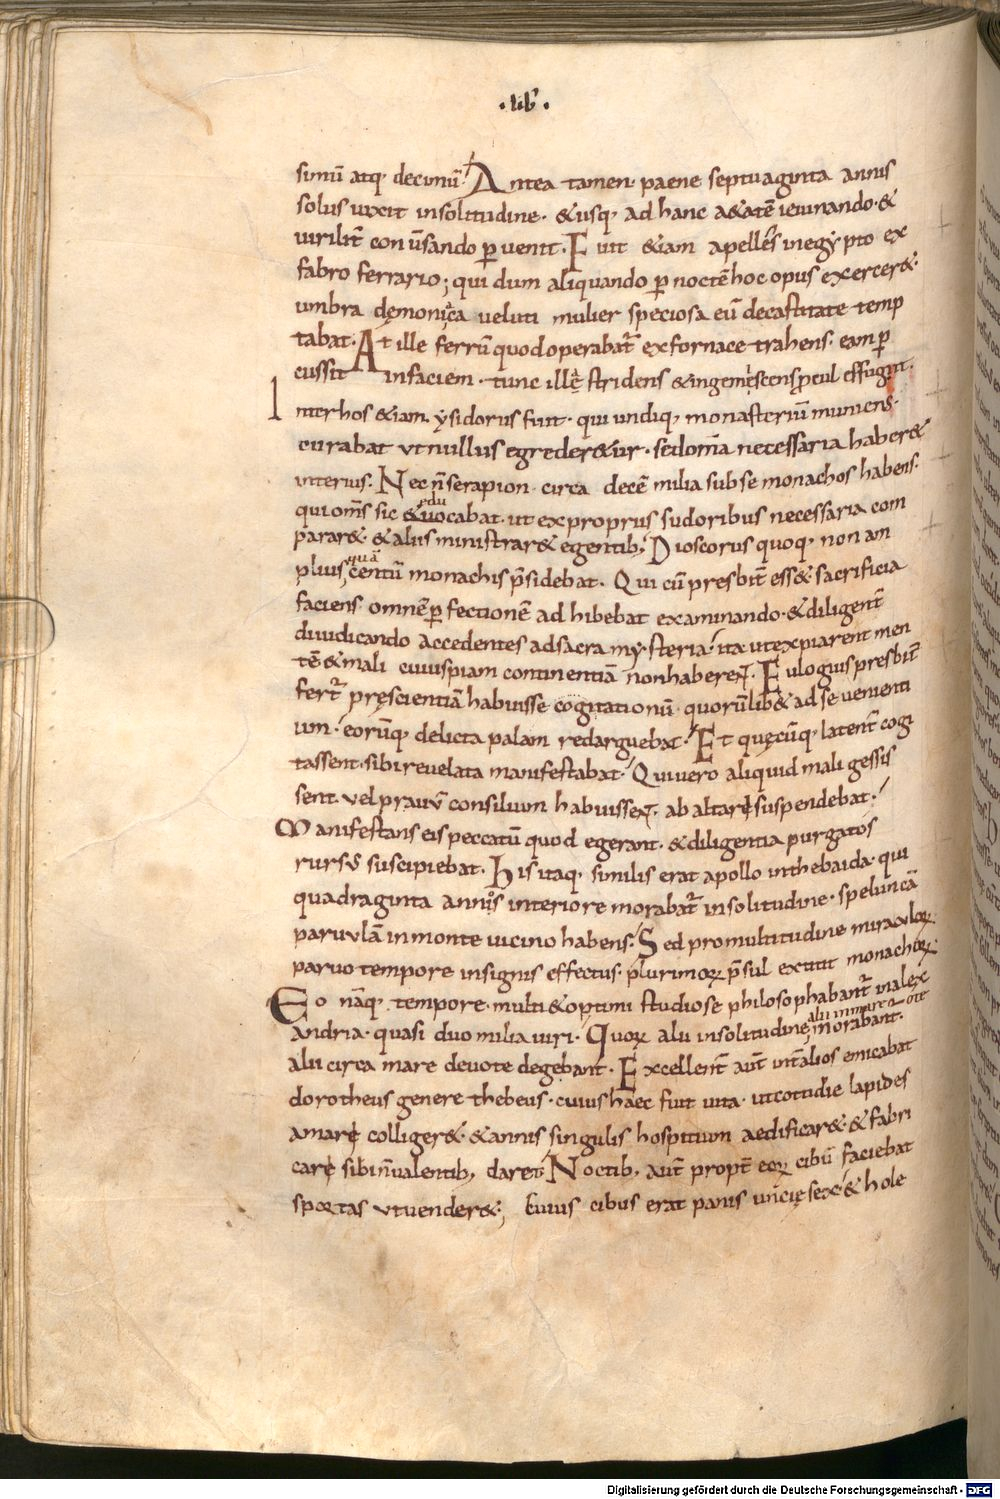 · lib̅ ·
simū atq; decimū. Antea tamen paene septuaginta annis
solus uixit insolitudine. &usq; ad hanc a&atē ieiunando. &
uirilit̄ conūsando ꝑuenit. Fuit &iam apelles inegypto ex
fabro ferrario; qui dum aliquando ꝑ noctē hoc opus exercer&.
umbra dęmonica ueluti mulier speciosa eū decastitate temp
tabat. At ille ferrū quod operabat̄ exfornace trahens. eam ꝑ
cussit infaciem. tunc ille stridens &ingemescens ꝓcul effugiit.
Interhos &iam ysidorus fuit. qui undiq; monasteriū muniens.
curabat ut nullus egreder&ur. sedom̄a necessaria haber&
interius. Nec n̄ serapion circa decē milia subse monachos habens.
edu
qui om̄s sic &uocabat. ut ex propriis sudoribus necessaria com
parar&. &aliis ministrar& egentib; Dioscorus quoq; non am
quā
plius centū monachis p̄sidebat. Qui cū presbit̄ ess& sacrificia
faciens omnē ꝑfectionē adhibebat examinando. &diligent̄
diiudicando accedentes adsacra mysteria. ita ut expiarent men
tē &mali cuiuspiam continentiā non haberent. Eulogius presbit̄
fert̄ pręscientiā habuisse cogitationū. quorūlib& ad se uenienti
um. eorūq; delicta palam redarguebat. Et quęcūq; latent̄ cogi
tassent. sibi reuelata manifestabat. Qui uero aliquid mali gessis
sent. uel prauū consilium habuissent. ab altare suspendebat.
Manifestans eis peccatū quod egerant. &diligentia purgatos
rursū suscipiebat. His itaq; similis erat apollo inthebaida. qui
quadraginta annis interiore morabat̄ insolitudine. speluncā
paruulā in monte uicino habens. Sed promultitudine miraculoꝝ
paruo tempore insignis effectus. plurimoꝝ p̄sul extitit monachoꝝ.
Eo nāq; tempore. multi &optimi studiose philosophabant̄ inalex
andria. quasi duo milia uiri. Quoꝝ alii insolitudine morabant̄.
alii circa mare deuote degebant. Excellent̄ aut̄ int̄ alios emicabat
dorotheus genere thebeus. cuius haec fuit uita. ut cottidie lapides
amare colliger&. &annis singulis hospitium aedificar&. &fabri
care sibi n̄ualentib; daret. Noctib; aut̄ propt̄ eoꝝ cibū faciebat
sportas ut uender&; Euius cibus erat panis uncię sex. & hole
Digitalisierung gefördert durch die Deutsche Forschungsgemeinschaft - DFG